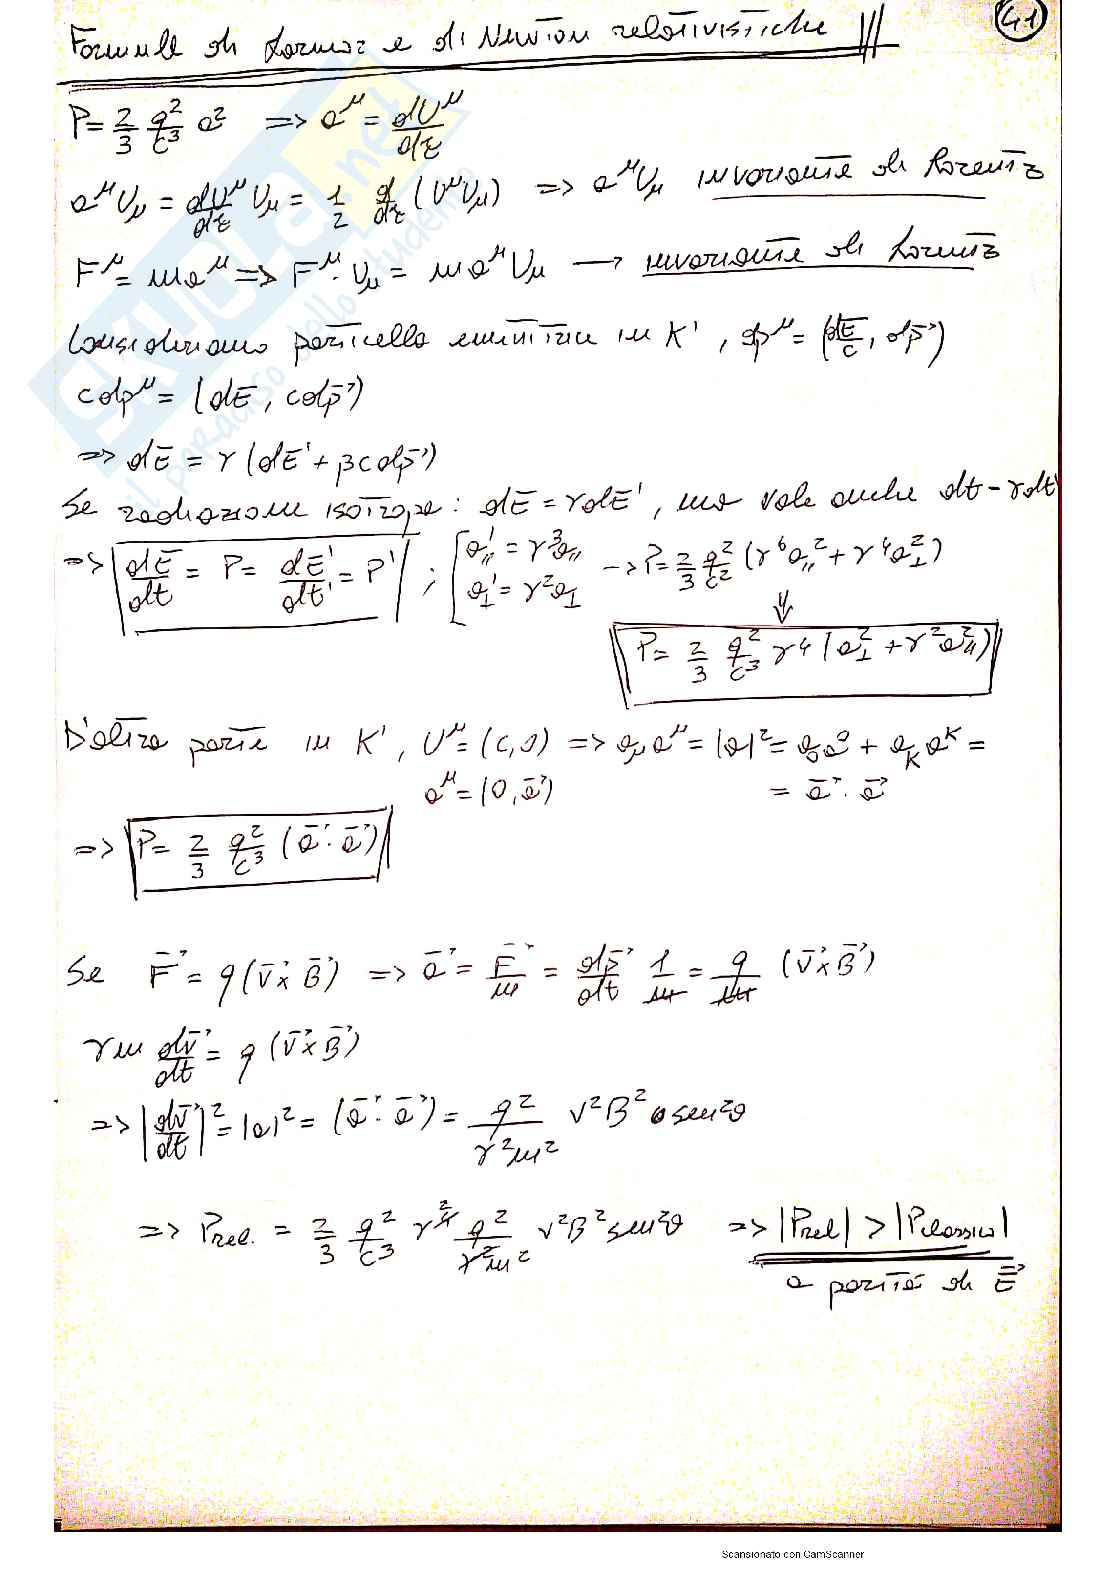 Formule di Larmor e di Newton relativistiche 41
P = 2/3 q²/c³ a² => a^μ = dU^μ/dτ
a^μ U_μ = dU^μ/dτ U_μ = 1/2 d/dτ (U^μ U_μ) => a^μ U_μ invariante di Lorentz
F^μ = m a^μ => F^μ · U_μ = m a^μ U_μ → invariante di Lorentz
Consideriamo particella emittrice in K', dp^μ = (dE/c, dp⃗)
c dp^μ = (dE, c dp⃗)
=> dE = γ (dE' + βc dp⃗')
Se radiazione isotropa: dE = γ dE', ma vale anche dt - γ dt'
=> dE/dt = P = dE'/dt' = P' ; [ a'_∥ = γ³ a_∥ → P = 2/3 q²/c² (γ⁶ a_∥² + γ⁴ a_⊥²)
a'_⊥ = γ² a_⊥
⇓
P = 2/3 q²/c³ γ⁴ (a_⊥² + γ² a_∥²)
D'altra parte in K', U^μ = (c, 0) => a_μ a^μ = |a|² = a_0 a^0 + a_K a^K =
a^μ = (0, a⃗) = a⃗ · a⃗
=> P = 2/3 q²/c³ (a⃗ · a⃗)
Se F⃗ = q (v⃗ × B⃗) => a⃗ = F⃗/m = dp⃗/dt 1/m = q/m (v⃗ × B⃗)
γm dv⃗/dt = q (v⃗ × B⃗)
=> |dv⃗/dt|² = |a|² = (a⃗ · a⃗) = q²/γ²m² v² B² sen²θ
=> P_rel. = 2/3 q²/c³ γ² q²/γ²m² v² B² sen²θ => |P_rel| > |P_classico|
a parità di E⃗
Scansionato con CamScanner
skuola.net
il paradiso dello studente